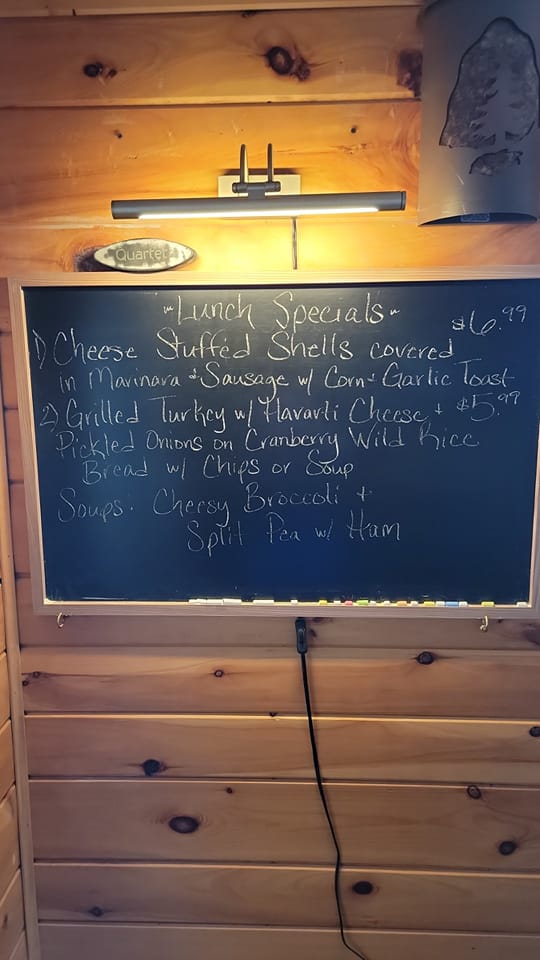 Quartet
"Lunch Specials"
$6.99
1) Cheese Stuffed Shells covered
in Marinara + Sausage w/ Corn + Garlic Toast
2) Grilled Turkey w/ Havarti Cheese + $5.99
Pickled Onions on Cranberry Wild Rice
Bread w/ Chips or Soup
Soups: Cheesy Broccoli +
Split Pea w/ Ham